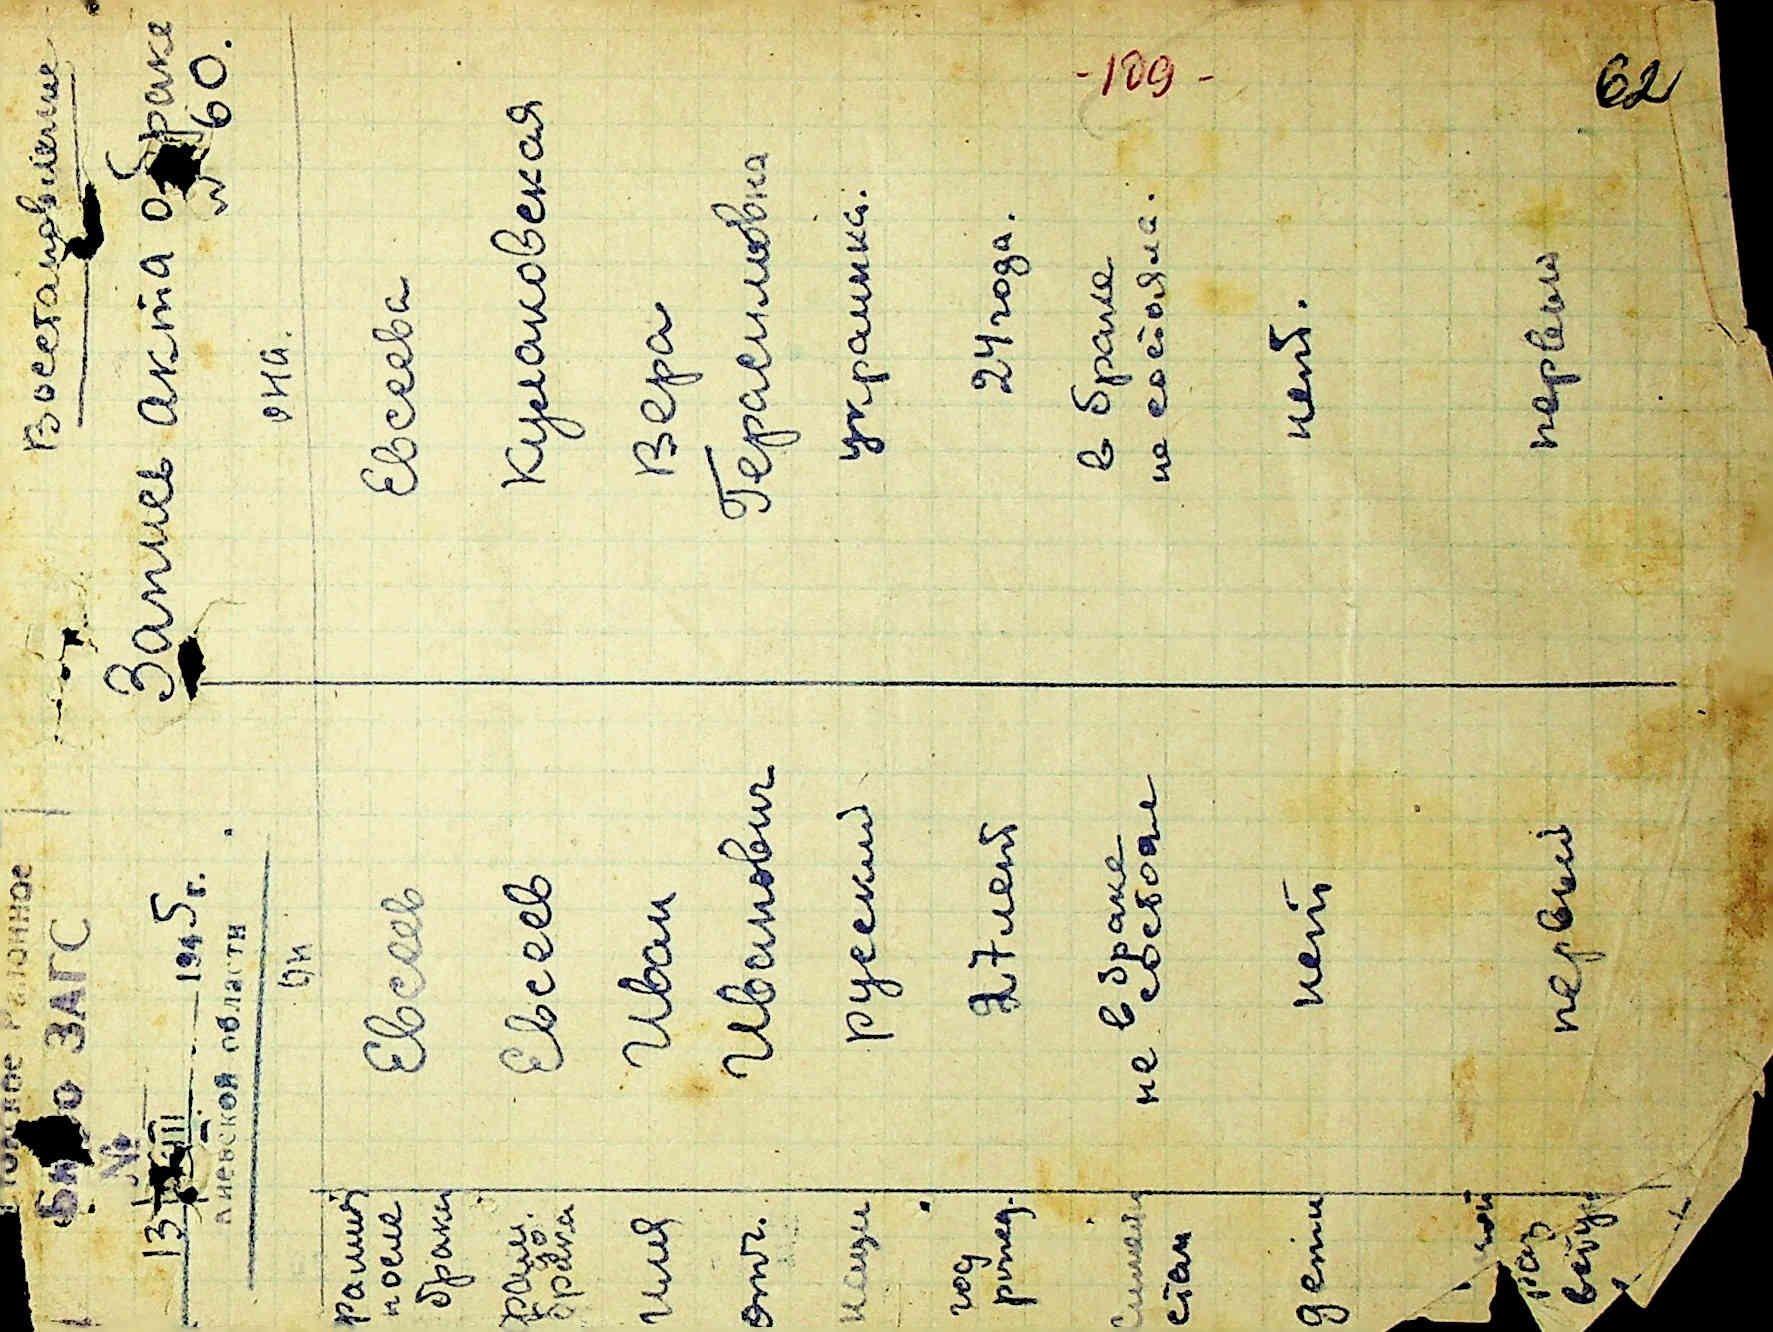 -109-
62
Восстановление
Районное
Бюро ЗАГС
№
13 VIII 1945 г.
Киевской области
Запись акта о браке
№ 60.
он
она.
фамилия после брака
Евсеев
Евсеева
фам. до брака
Евсеев
Кулаковская
имя
Иван
Вера
отч.
Иванович
Герасимовна
наци
русский
украинка.
год рожд.
27 лет
24 года.
стан
в браке
не состоял
в браке
не состояла.
дети
нет
нет.
раз
вступ
первый
первый